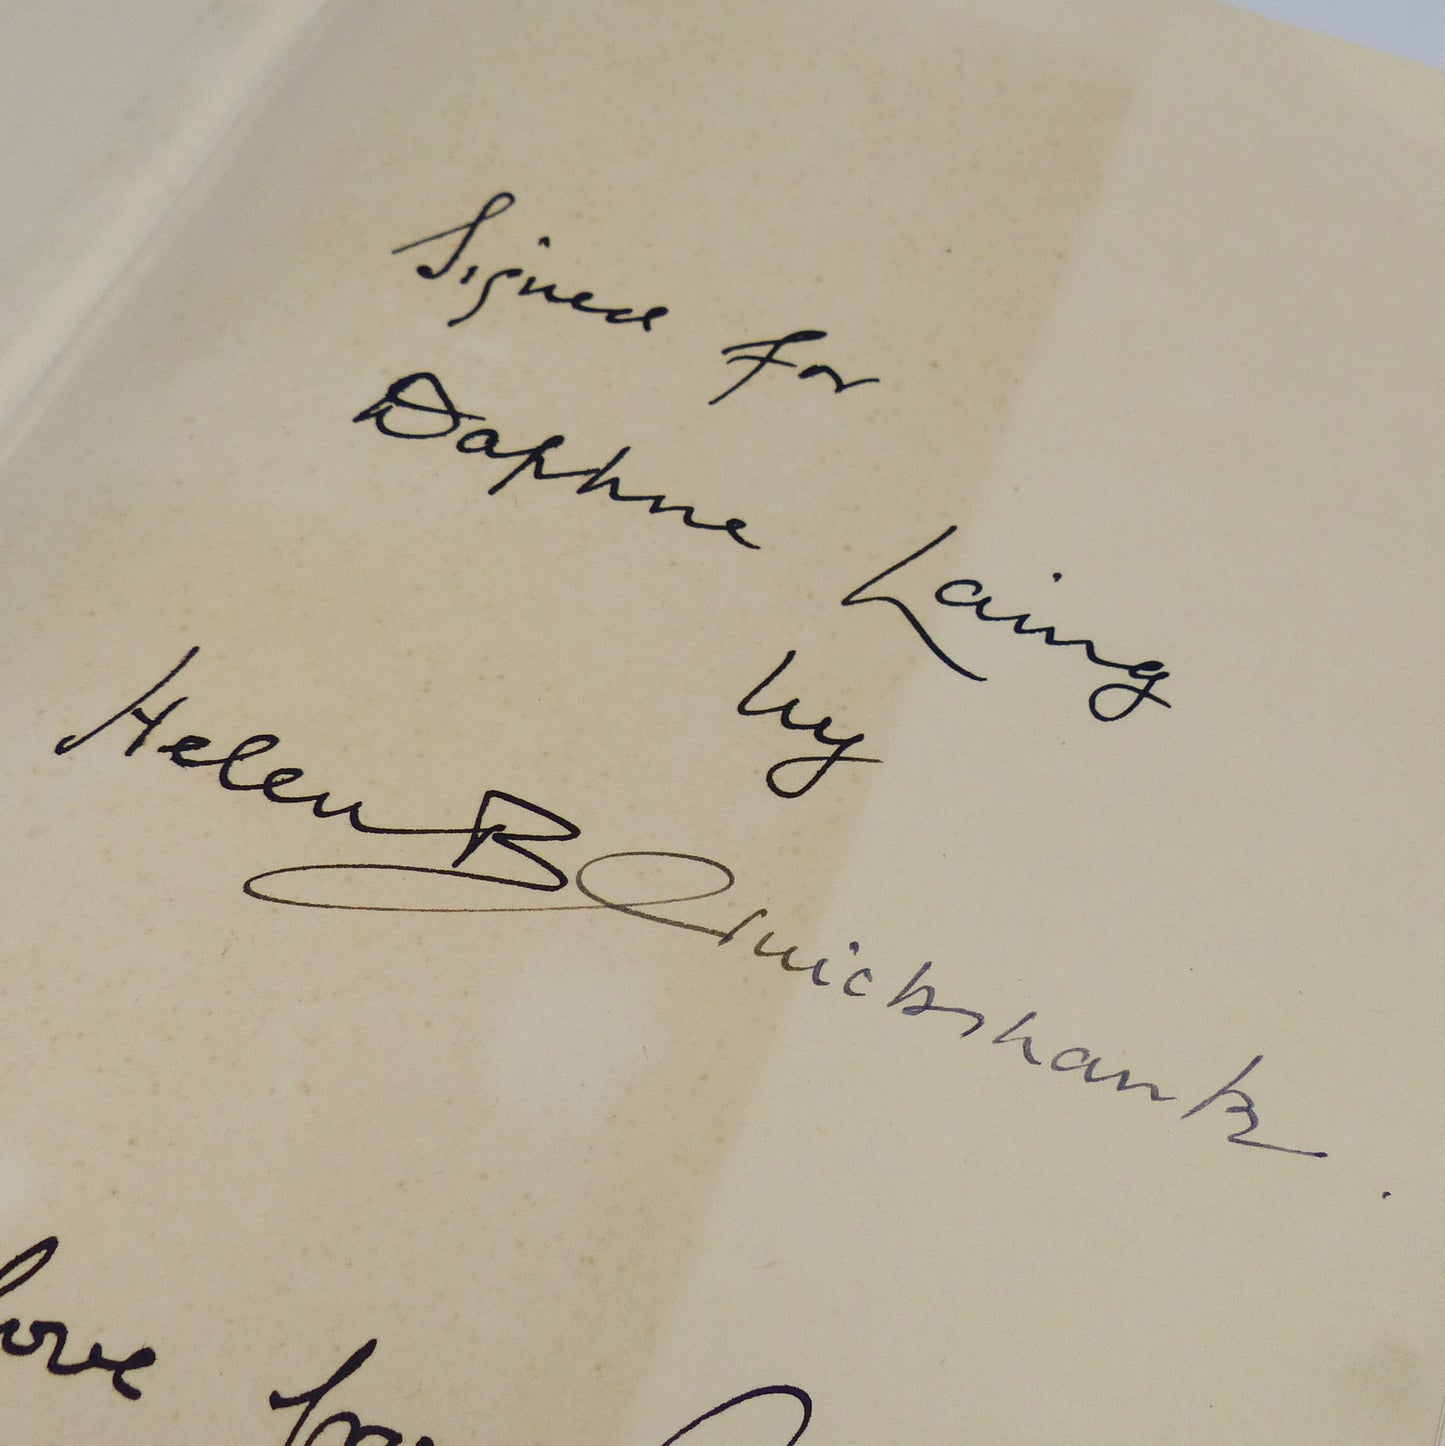 Signed for
Daphne Laing
by
Helen B Cruickshank.
Love from